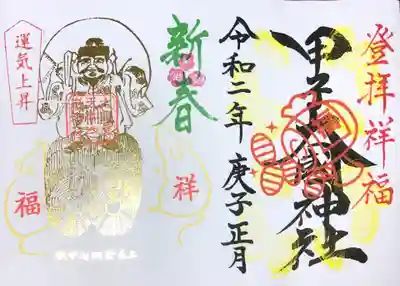 登拝祥福
甲子
神社
令和二年 庚子正月
新春
祥
福
運気上昇